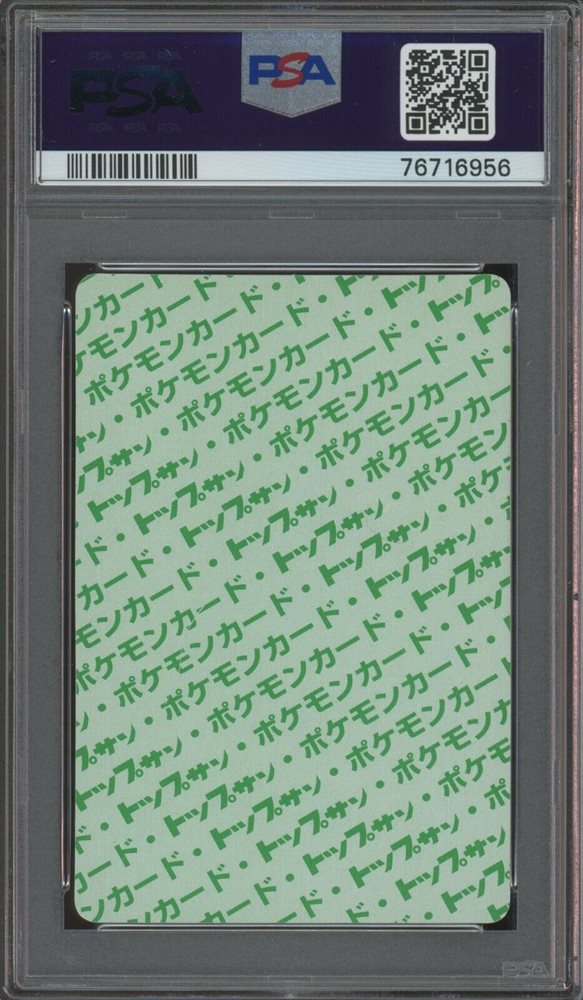 PSA
PSA
76716956
ンカード・
ケモンカード・ト
ポケモンカード・トップ
サン・ポケモンカード・ト
ップサン・ポケモンカード・
トップサン・ポケモンカー
ド・トップサン・ポケモン
カード・トップサン・ポケ
モンカード・トップサン・
ポケモンカード・トップサン
・ポケモンカード・
サン・ポケモンカード
トップサン・ポケモンカ
ド・トップサン・ポケモ
ード・トップサン・ポ
ンカード・トップサン
PSA